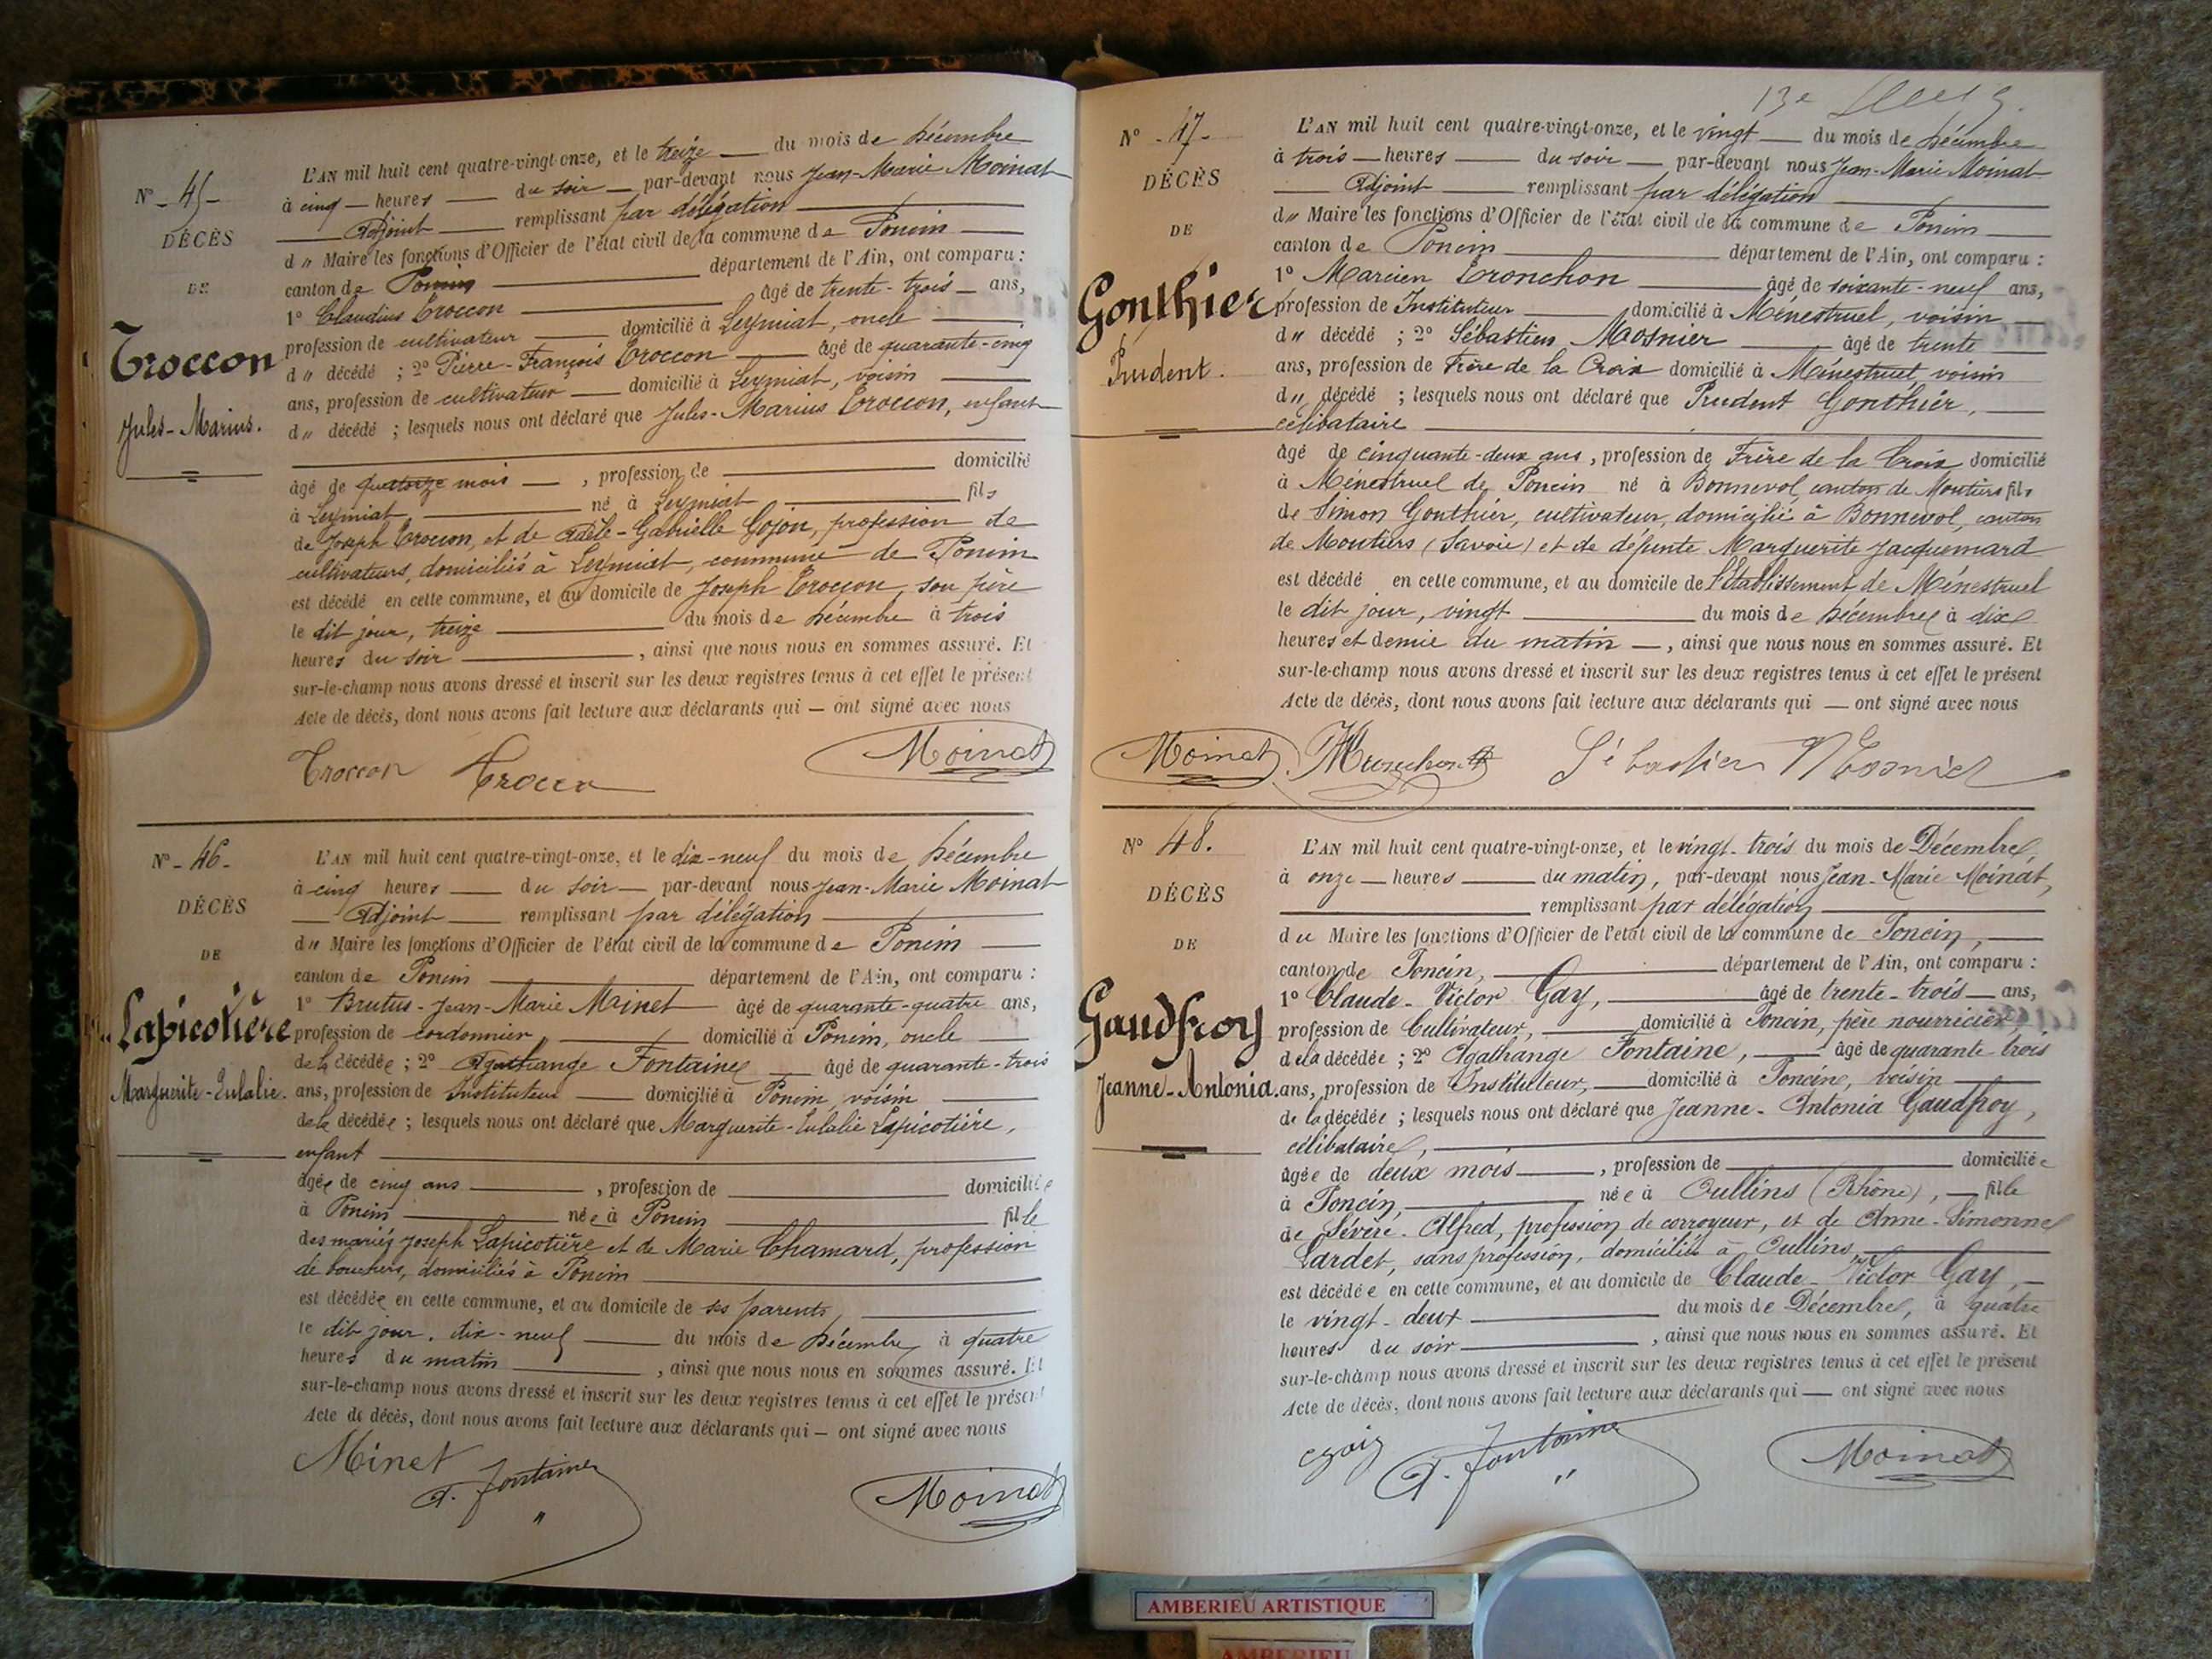 N° - 45 -
DÉCÈS
DE
Troccon
Jules-Marius.
L'AN mil huit cent quatre-vingt-onze, et le treize du mois de Décembre
à cinq heures du soir par-devant nous Jean-Marie Moinat
Adjoint remplissant par délégation
d" Maire les fonctions d'Officier de l'état civil de la commune de Poncin
canton de Poncin département de l'Ain, ont comparu :
1° Claudius Troccon âgé de trente-trois ans,
profession de cultivateur domicilié à Leymiat, oncle
d" décédé ; 2° Pierre-François Troccon âgé de quarante-cinq
ans, profession de cultivateur domicilié à Leymiat, voisin
d" décédé ; lesquels nous ont déclaré que Jules-Marius Troccon, enfant
âgé de quatorze mois , profession de domicilié
à Leymiat, né à Leymiat fils
de Joseph Troccon, et de Adèle-Gabrielle Cojon, profession de
cultivateurs, domiciliés à Leymiat, commune de Poncin
est décédé en cette commune, et au domicile de Joseph Troccon, son père
le dit jour, treize du mois de Décembre à trois
heures du soir , ainsi que nous nous en sommes assuré. Et
sur-le-champ nous avons dressé et inscrit sur les deux registres tenus à cet effet le présent
Acte de décès, dont nous avons fait lecture aux déclarants qui — ont signé avec nous
Troccon Troccon Moinat
N° - 46 -
DÉCÈS
DE
Lapicotière
Marguerite-Eulalie.
L'AN mil huit cent quatre-vingt-onze, et le dix-neuf du mois de Décembre
à cinq heures du soir par-devant nous Jean-Marie Moinat
Adjoint remplissant par délégation
d" Maire les fonctions d'Officier de l'état civil de la commune de Poncin
canton de Poncin département de l'Ain, ont comparu :
1° Brutus-Jean-Marie Minet âgé de quarante-quatre ans,
profession de cordonnier, domicilié à Poncin, oncle
de la décédée ; 2° Agathange Fontaine âgé de quarante-trois
ans, profession de Instituteur domicilié à Poncin, voisin
de la décédée ; lesquels nous ont déclaré que Marguerite-Eulalie Lapicotière,
enfant
âgée de cinq ans , profession de domiciliée
à Poncin née à Poncin fille
des mariés Joseph Lapicotière et de Marie Chamard, profession
de bouchers, domiciliés à Poncin
est décédée en cette commune, et au domicile de ses parents,
le dit jour, dix-neuf du mois de Décembre, à quatre
heures du matin , ainsi que nous nous en sommes assuré. Et
sur-le-champ nous avons dressé et inscrit sur les deux registres tenus à cet effet le présent
Acte de décès, dont nous avons fait lecture aux déclarants qui — ont signé avec nous
Minet A. Fontaine Moinat
13e
N° - 47 -
DÉCÈS
DE
Gonthier
Prudent.
L'AN mil huit cent quatre-vingt-onze, et le vingt du mois de Décembre
à trois heures du soir par-devant nous Jean-Marie Moinat
Adjoint remplissant par délégation
d" Maire les fonctions d'Officier de l'état civil de la commune de Poncin
canton de Poncin département de l'Ain, ont comparu :
1° Marcien Tronchon âgé de soixante-neuf ans,
profession de Instituteur domicilié à Ménestruel, voisin
d" décédé ; 2° Sébastien Mosnier âgé de trente
ans, profession de Frère de la Croix domicilié à Ménestruel, voisin
d" décédé ; lesquels nous ont déclaré que Prudent Gonthier,
célibataire
âgé de cinquante-deux ans, profession de Frère de la Croix domicilié
à Ménestruel de Poncin né à Bonneval, canton de Moutiers fils
de Simon Gonthier, cultivateur, domicilié à Bonneval, canton
de Moutiers (Savoie) et de défunte Marguerite Jacquemard
est décédé en cette commune, et au domicile de l'Etablissement de Ménestruel
le dit jour, vingt du mois de Décembre à dix
heures et demie du matin , ainsi que nous nous en sommes assuré. Et
sur-le-champ nous avons dressé et inscrit sur les deux registres tenus à cet effet le présent
Acte de décès, dont nous avons fait lecture aux déclarants qui — ont signé avec nous
Moinat Tronchon Sébastien Mosnier
N° 48.
DÉCÈS
DE
Gaudfroy
Jeanne-Antonia.
L'AN mil huit cent quatre-vingt-onze, et le vingt-trois du mois de Décembre,
à onze heures du matin, par-devant nous Jean-Marie Moinat,
remplissant par délégation
du Maire les fonctions d'Officier de l'état civil de la commune de Poncin,
canton de Poncin, département de l'Ain, ont comparu :
1° Claude-Victor Gay, âgé de trente-trois ans,
profession de Cultivateur, domicilié à Poncin, père nourricier,
de la décédée ; 2° Agathange Fontaine, âgé de quarante-trois
ans, profession de Instituteur, domicilié à Poncin, voisin
de la décédée ; lesquels nous ont déclaré que Jeanne-Antonia Gaudfroy,
célibataire,
âgée de deux mois , profession de domiciliée
à Poncin, née à Oullins (Rhône), fille
de Sévère-Alfred, profession de corroyeur, et de Anne-Simonne
Lardet, sans profession, domiciliés à Oullins
est décédée en cette commune, et au domicile de Claude-Victor Gay,
le vingt-deux du mois de Décembre, à quatre
heures du soir , ainsi que nous nous en sommes assuré. Et
sur-le-champ nous avons dressé et inscrit sur les deux registres tenus à cet effet le présent
Acte de décès, dont nous avons fait lecture aux déclarants qui — ont signé avec nous
A. Fontaine Moinat
AMBERIEU ARTISTIQUE
AMBERIEU